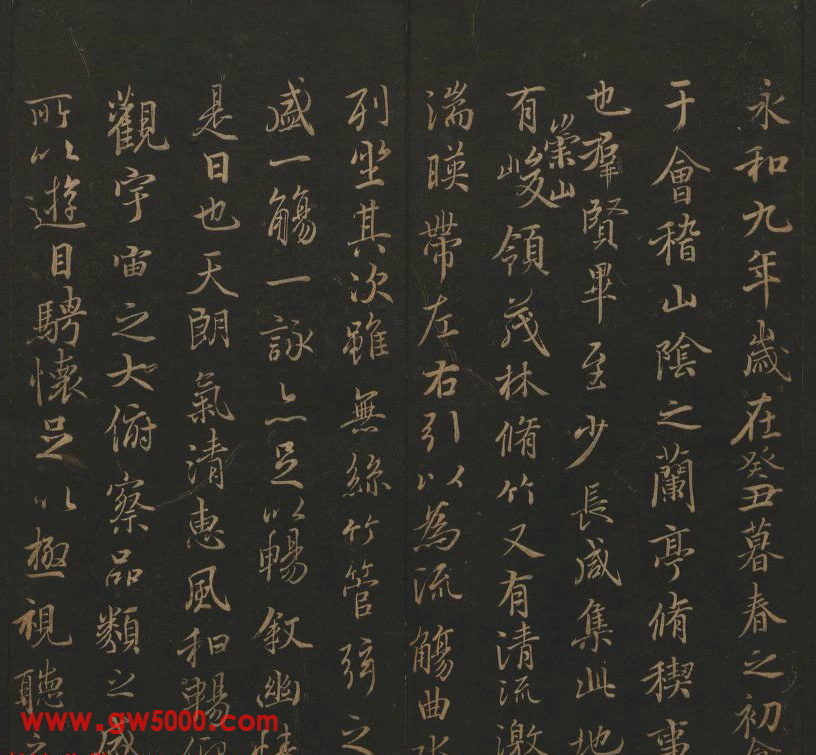 永和九年歲在癸丑暮春之初
于會稽山陰之蘭亭脩稧事
也羣賢畢至少長咸集此地
有崇山峻領茂林脩竹又有清流激
湍暎帶左右引以為流觴曲水
列坐其次雖無絲竹管弦之
盛一觴一詠亦足以暢敘幽情
是日也天朗氣清惠風和暢仰
觀宇宙之大俯察品類之盛
所以遊目騁懷足以極視聽之
www.gw5000.com